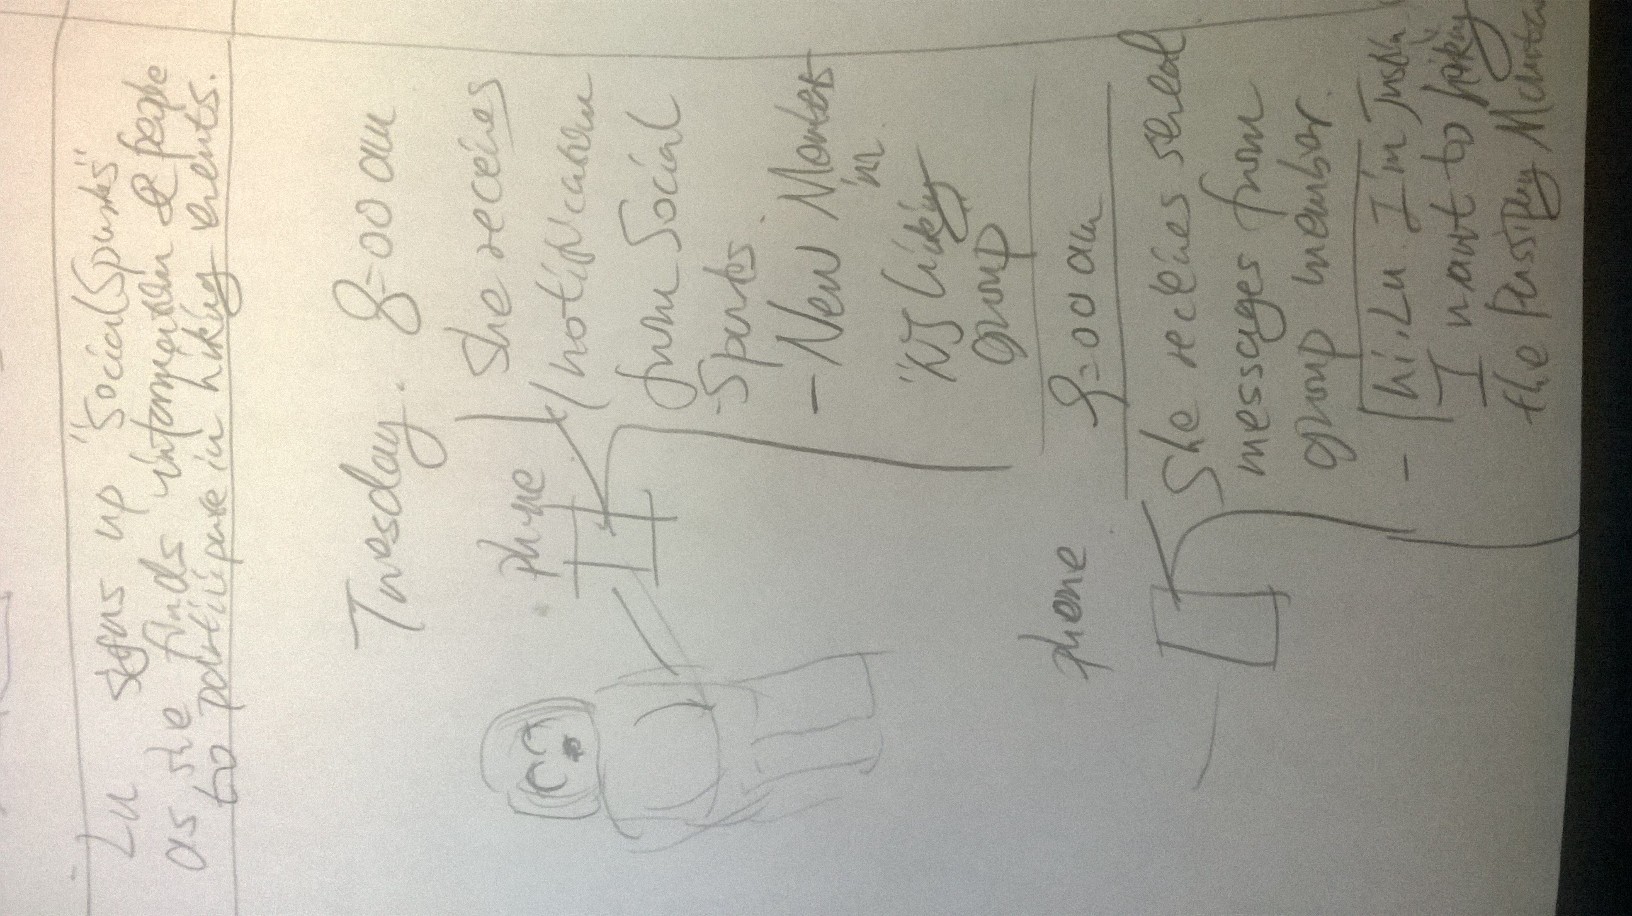 Lu signs up "Social Spurts"
as she finds information & people
to participate in hiking events.
Tuesday. 8:00 am
phone
She receives
notification
from Social
Spurts.
- New Members
in
"NJ hiking
group
phone
9:00 am
She receives several
messages from
group member.
- hi, Lu I'm
I want to hiking
the